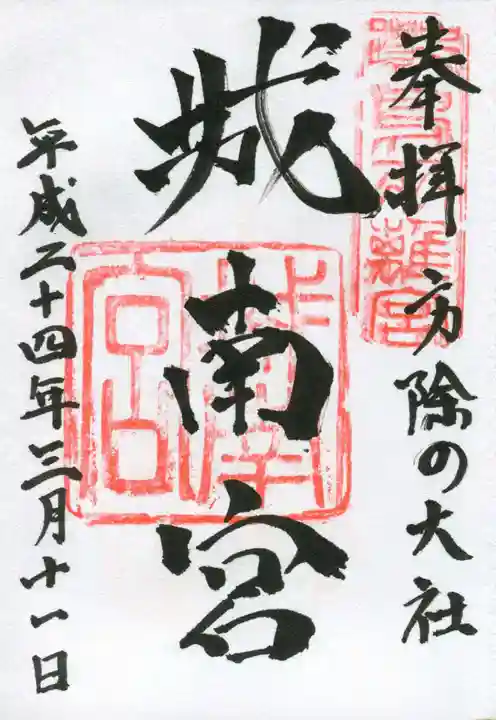 奉拝 方除の大社
城南宮
平成二十四年三月十一日